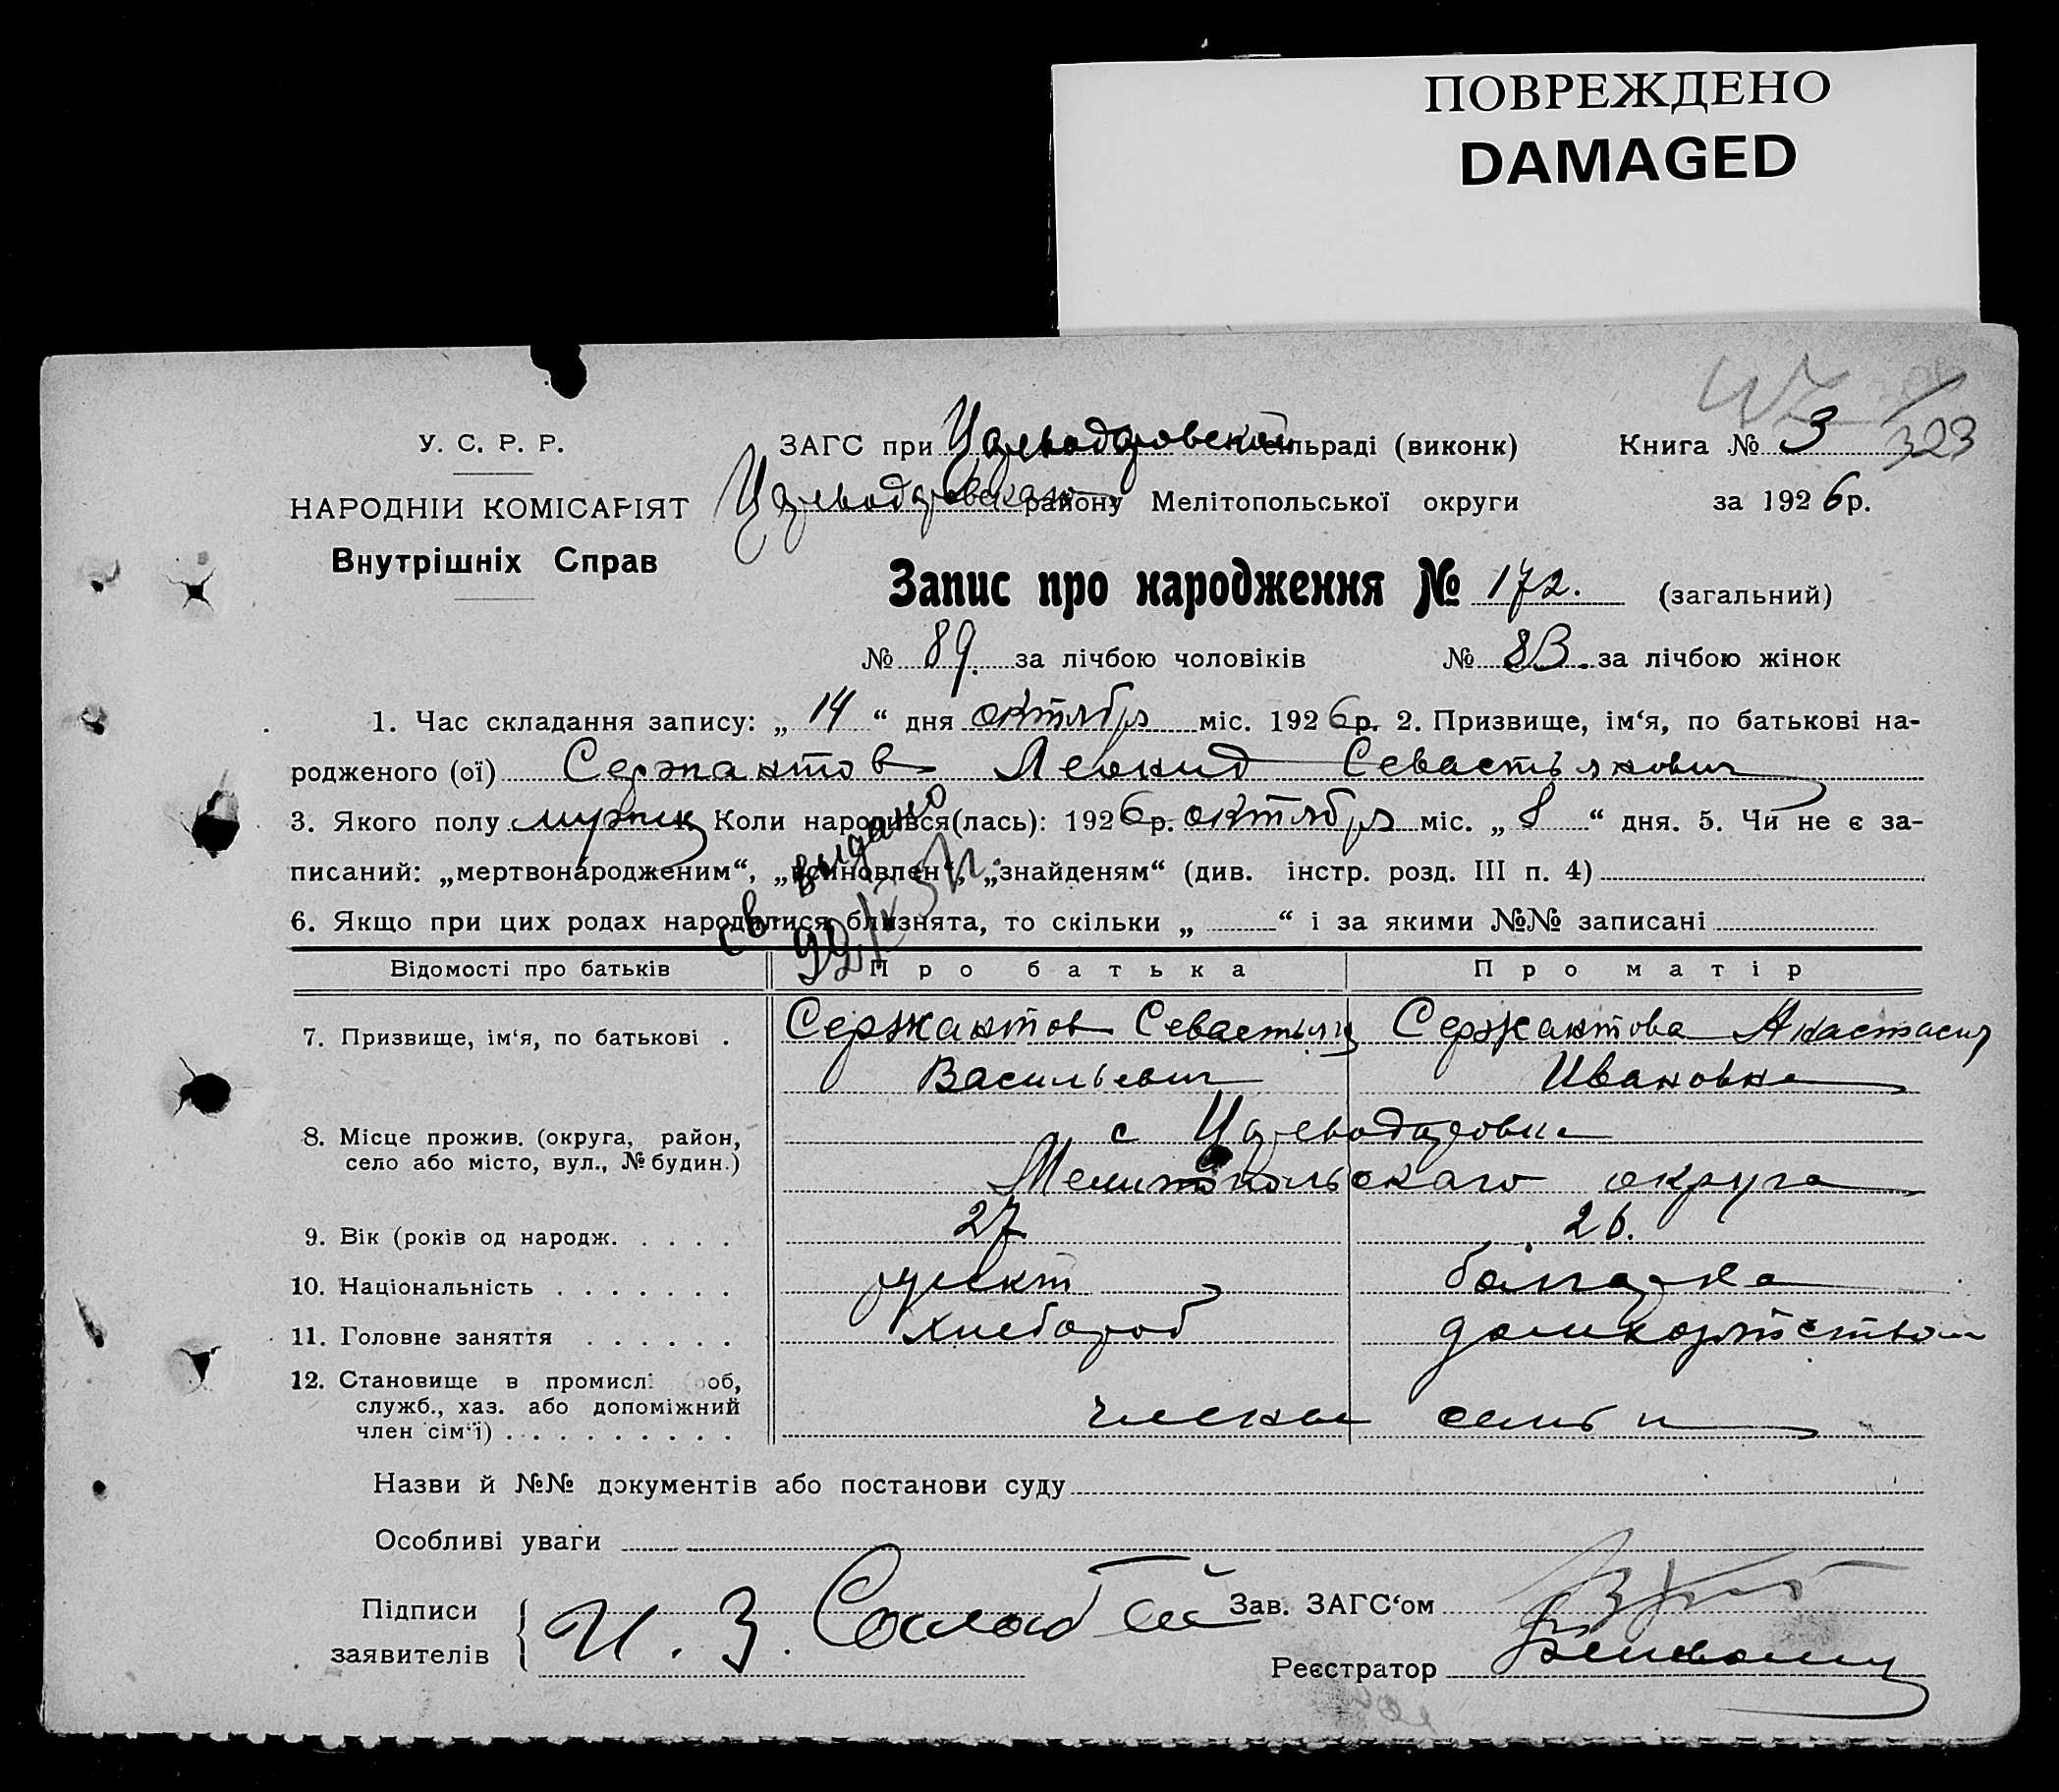 ПОВРЕЖДЕНО
DAMAGED
У. С. Р. Р.
НАРОДНІЙ КОМІСАРІЯТ
Внутрішніх Справ
ЗАГС при Царьводаровской сільраді (виконк)
Царьводаровскаго району Мелітопольської округи
Книга № 3
323
за 1926 р.
Запис про народження № 172. (загальний)
№ 89. за лічбою чоловіків № 83. за лічбою жінок
1. Час складання запису: „ 14 “ дня октября міс. 1926 р. 2. Призвище, ім‘я, по батькові на-
родженого (ої) Сержантов Леонид Севастьянович
3. Якого полу мужск Коли народився(лась): 1926 р. октября міс. „ 8 “ дня. 5. Чи не є за-
писаний: „мертвонародженим“, „всиновлен“, „знайденям“ (див. інстр. розд. III п. 4)
6. Якщо при цих родах народилися близнята, то скільки „ “ і за якими №№ записані
св. выдано
Відомості про батьків Про батька Про матір
7. Призвище, ім‘я, по батькові . Сержантов Севастьян Сержантова Анастасия
Васильевич Ивановна
8. Місце прожив. (округа, район,
село або місто, вул., № будин.)
с Царьводаровка
Мелитопольскаго округа
9. Вік (років од народж. . . . . 27 26.
10. Національність . . . . . . . болгарка
11. Головне заняття . . . . . . Хлебороб домохозяйством
12. Становище в промислі об,
служб., хаз. або допоміжний
член сім‘ї) . . . . . . . . . члены семьи
Назви й №№ документів або постанови суду
Особливі уваги
Підписи
заявителів
И. З.
Зав. ЗАГС‘ом
Реєстратор